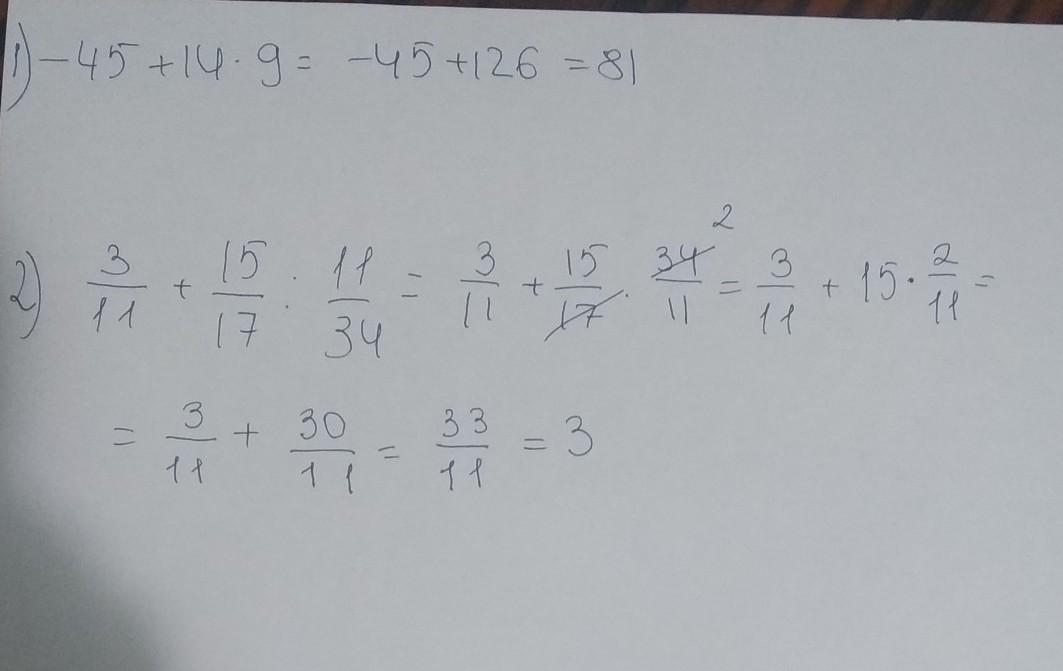 1) -45 + 14 · 9 = -45 + 126 = 81
2) 3/11 + 15/17 : 11/34 = 3/11 + 15/17 · 34/11 2 = 3/11 + 15 · 2/11 =
= 3/11 + 30/11 = 33/11 = 3